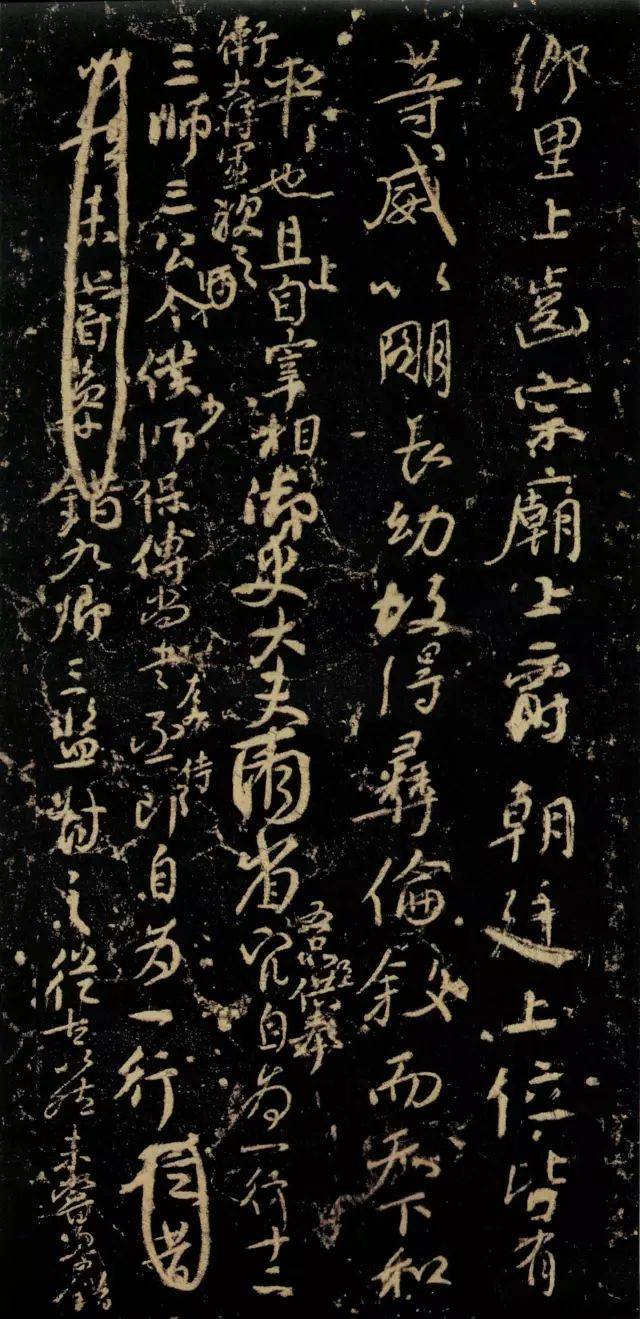 鄉里上齒宗廟上爵朝廷上位皆有
等威以明長幼故得彝倫敘而天下和
平也且上自宰相御史大夫兩省五品以上供奉官自為一行十二
衛大將軍次之
三師三公令僕少師保傅尚書左右丞侍郎自為一行
未嘗參錯九卿三監對之從古以然未嘗參錯